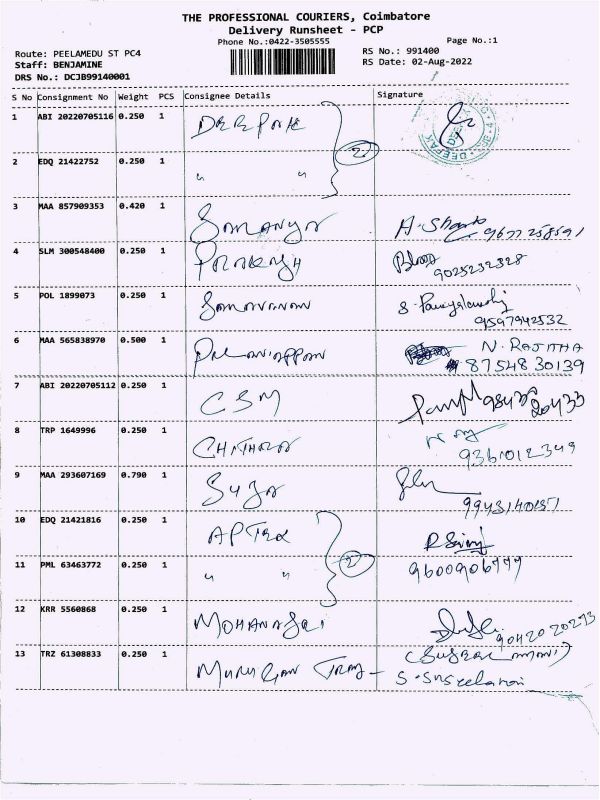 THE PROFESSIONAL COURIERS, Coimbatore
Delivery Runsheet - PCP
Phone No.:0422-3505555 Page No.:1
Route: PEELAMEDU ST PC4 RS No.: 991400
Staff: BENJAMINE RS Date: 02-Aug-2022
DRS No.: DCJB99140001
S No Consignment No Weight PCS Consignee Details Signature
1 ABI 20220705116 0.250 1 DEEPAK
2 EDQ 21422752 0.250 1 " " 2
3 MAA 857909353 0.420 1
4 SLM 300548400 0.250 1 PRAKASH 9025232328
5 POL 1899073 0.250 1 SARAVANAN 9597942532
6 MAA 565838970 0.500 1 PALANIAPPAN N. RAJITHA
87548 30139
7 ABI 20220705112 0.250 1 CSM
8 TRP 1649996 0.250 1 CHITHRA 9361012349
9 MAA 293607169 0.790 1 SUJA
10 EDQ 21421816 0.250 1
11 PML 63463772 0.250 1 " " 2
12 KRR 5560868 0.250 1
13 TRZ 61308833 0.250 1 MURUGAN